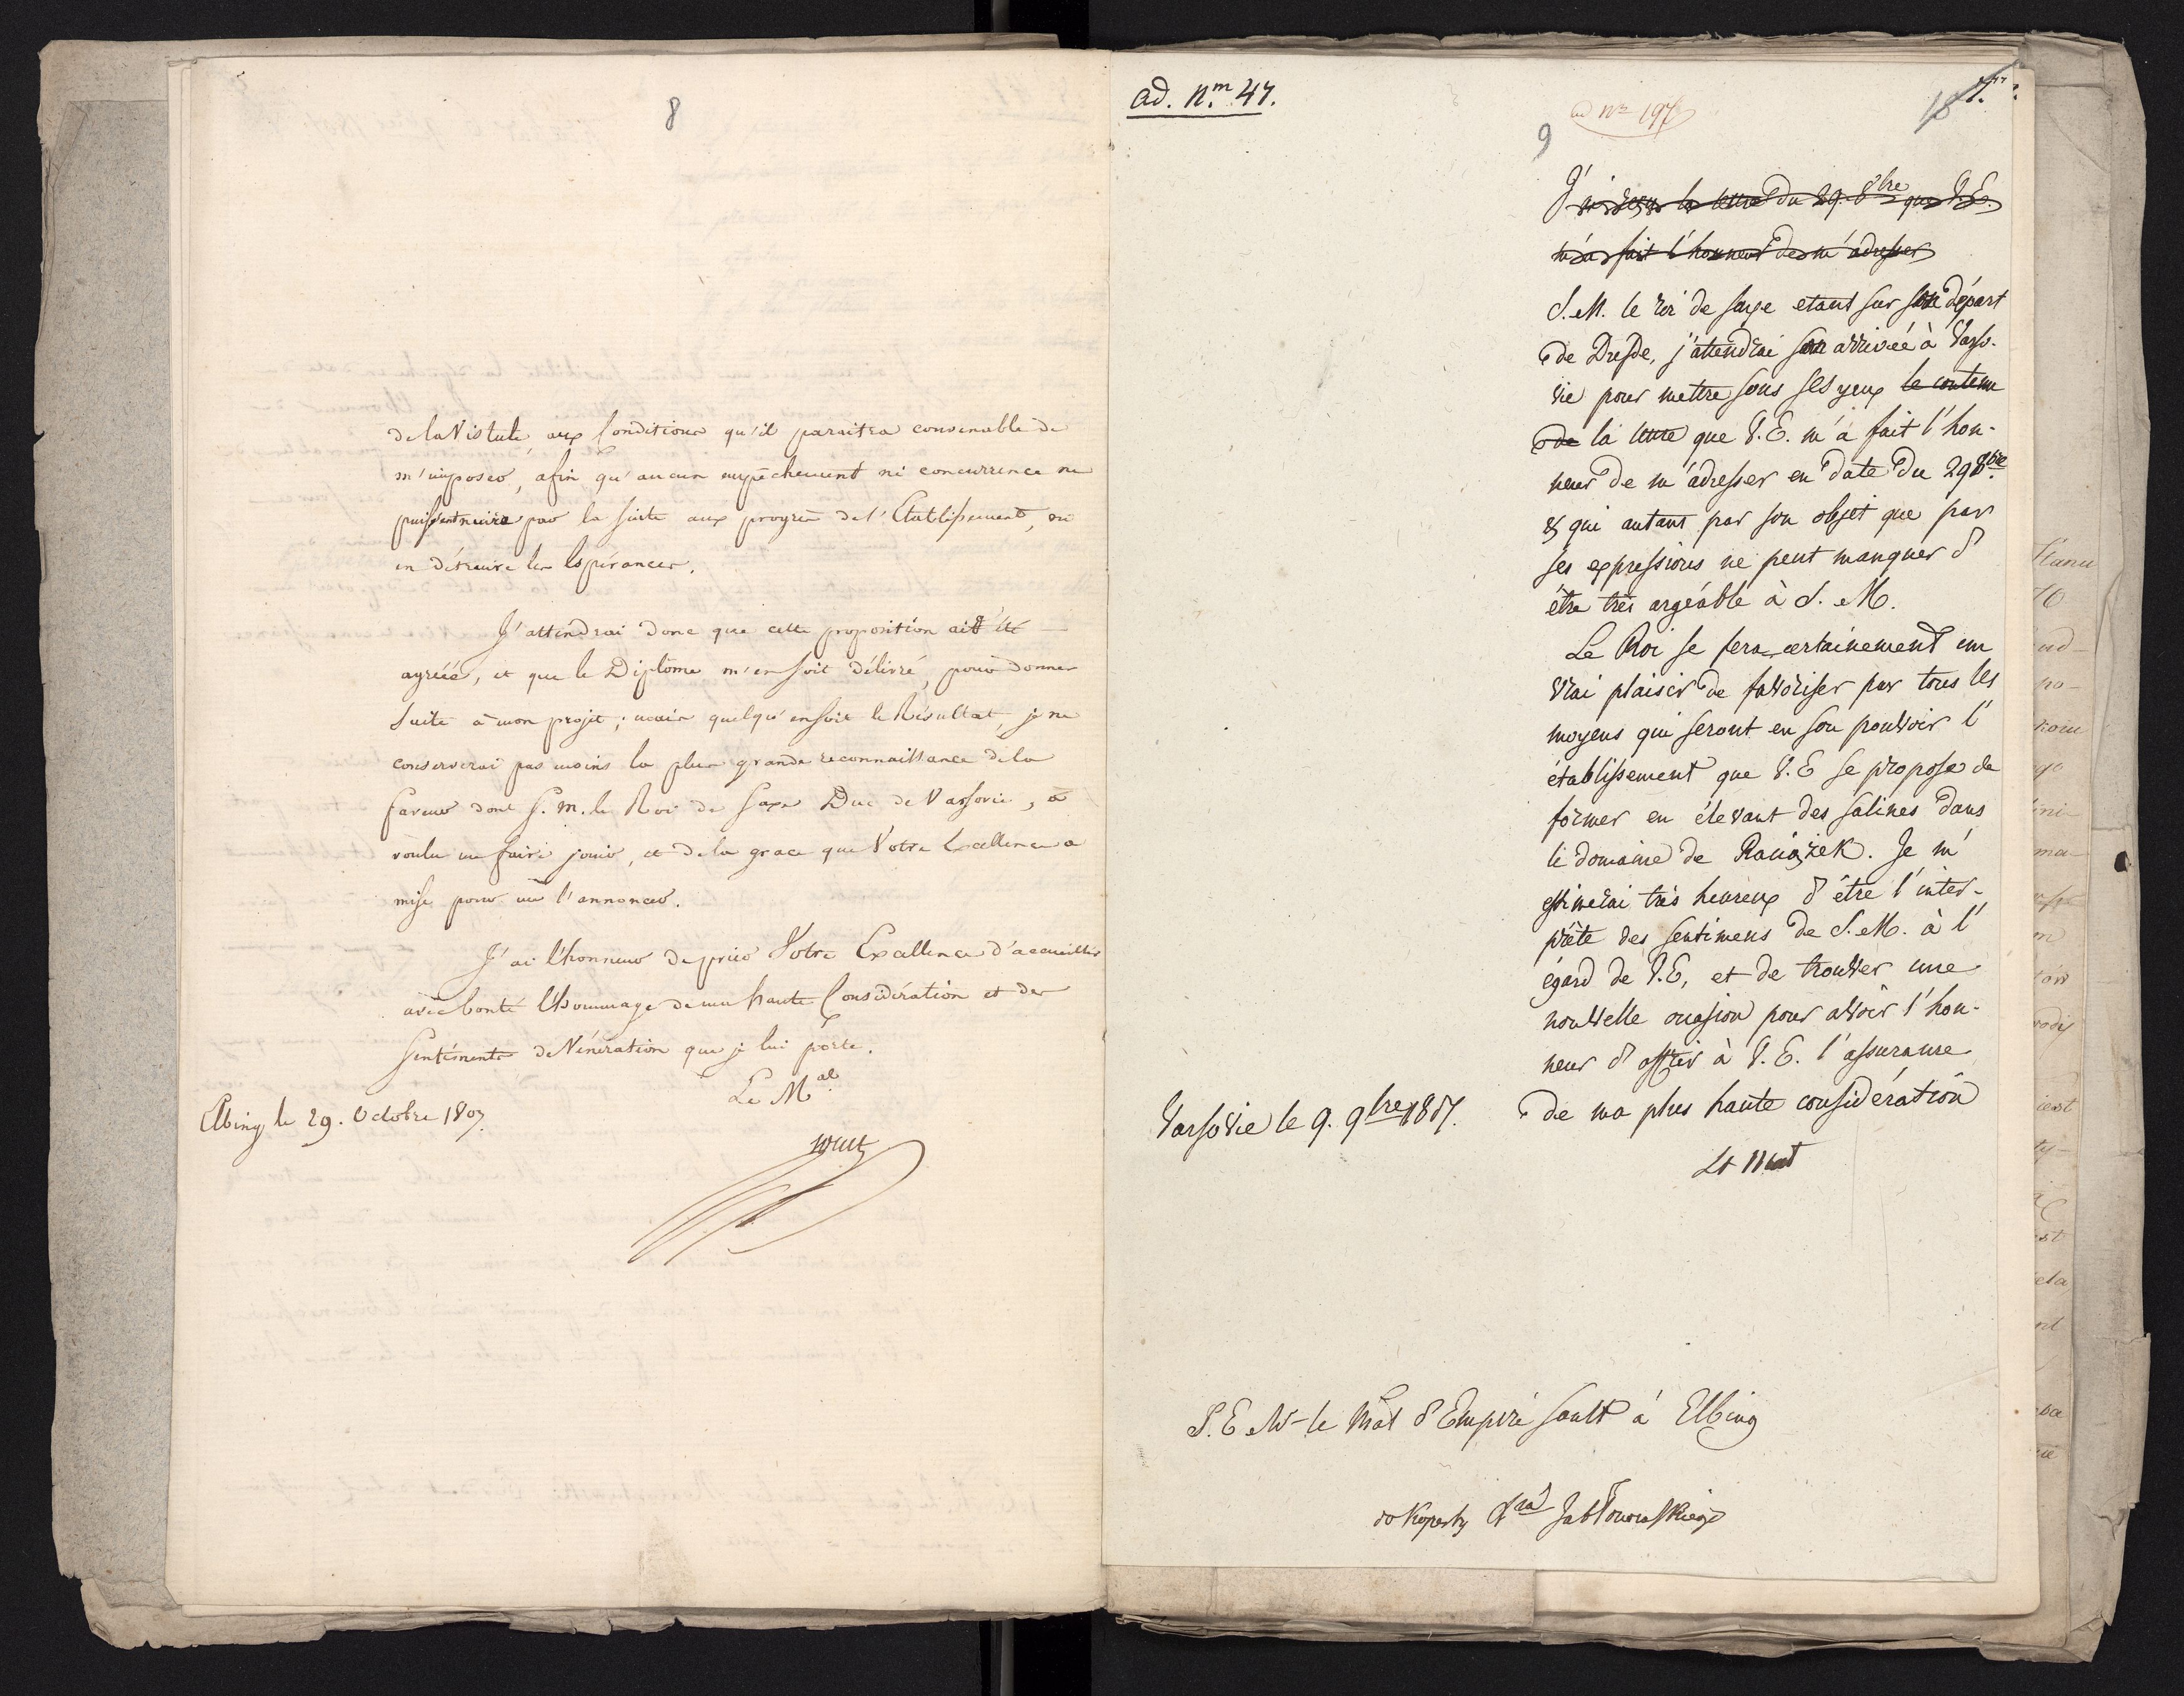 8
de la Vistule aux Conditions qu'il paraitra convenable de
m'imposer, afin qu'aucun empêchement ni concurrence ne
puissent nuire par la suite aux progrès de l'Etablissement, ou
en détruire les Espérances.
J'attendrai donc que cette proposition ait été
agréée, et que le Diplôme m'en soit délivré, pour donner
suite à mon projet; mais quelqu'en soit le Résultat, je ne
conserverai pas moins la plus grande reconnaissance de la
faveur dont S. M. le Roi de Saxe Duc de Varsovie, a
voulu me faire jouir, et de la grace que Votre Excellence a
mise pour me l'annoncer.
J'ai l'honneur de prier Votre Excellence d'accueillir
avec bonté l'hommage de ma haute Considération et des
Sentiments de Vénération que je lui porte.
Le M.al
Elbing le 29. Octobre 1807.
Soult
ad. N.m 47.
ad Nr 197
9
J'ai reçu la lettre du 29. 8bre que V. E.
m'a fait l'honneur de m'adresser
S. M. le roi de saxe etant sur son départ
de Dresde, j'attendrai son arrivée à Varso-
vie pour mettre sous ses yeux le contenu
de la lettre que V. E. m'a fait l'hon-
neur de m'adresser en date du 29 8bre
& qui autant par son objet que par
ses expressions ne peut manquer d'
être très argéable à S. M.
Le Roi se fera certainement un
vrai plaisir de favoriser par tous les
moyens qui seront en son pouvoir l'
établissement que V. E se propose de
former en élevant des salines dans
le domaine de Raciążek. Je m'
estimerai très heureux d'être l'inter-
prète des sentimens de S. M. à l'
égard de V. E, et de trouver une
nouvelle occasion pour avoir l'hon-
neur d'offrir à V. E. l'assurance
de ma plus haute considération
Varsovie le 9. 9bre 1807.
S. E Mr le Mal d'Empire Soult à Elbing
do Koperty Gra Jabłonowskiego